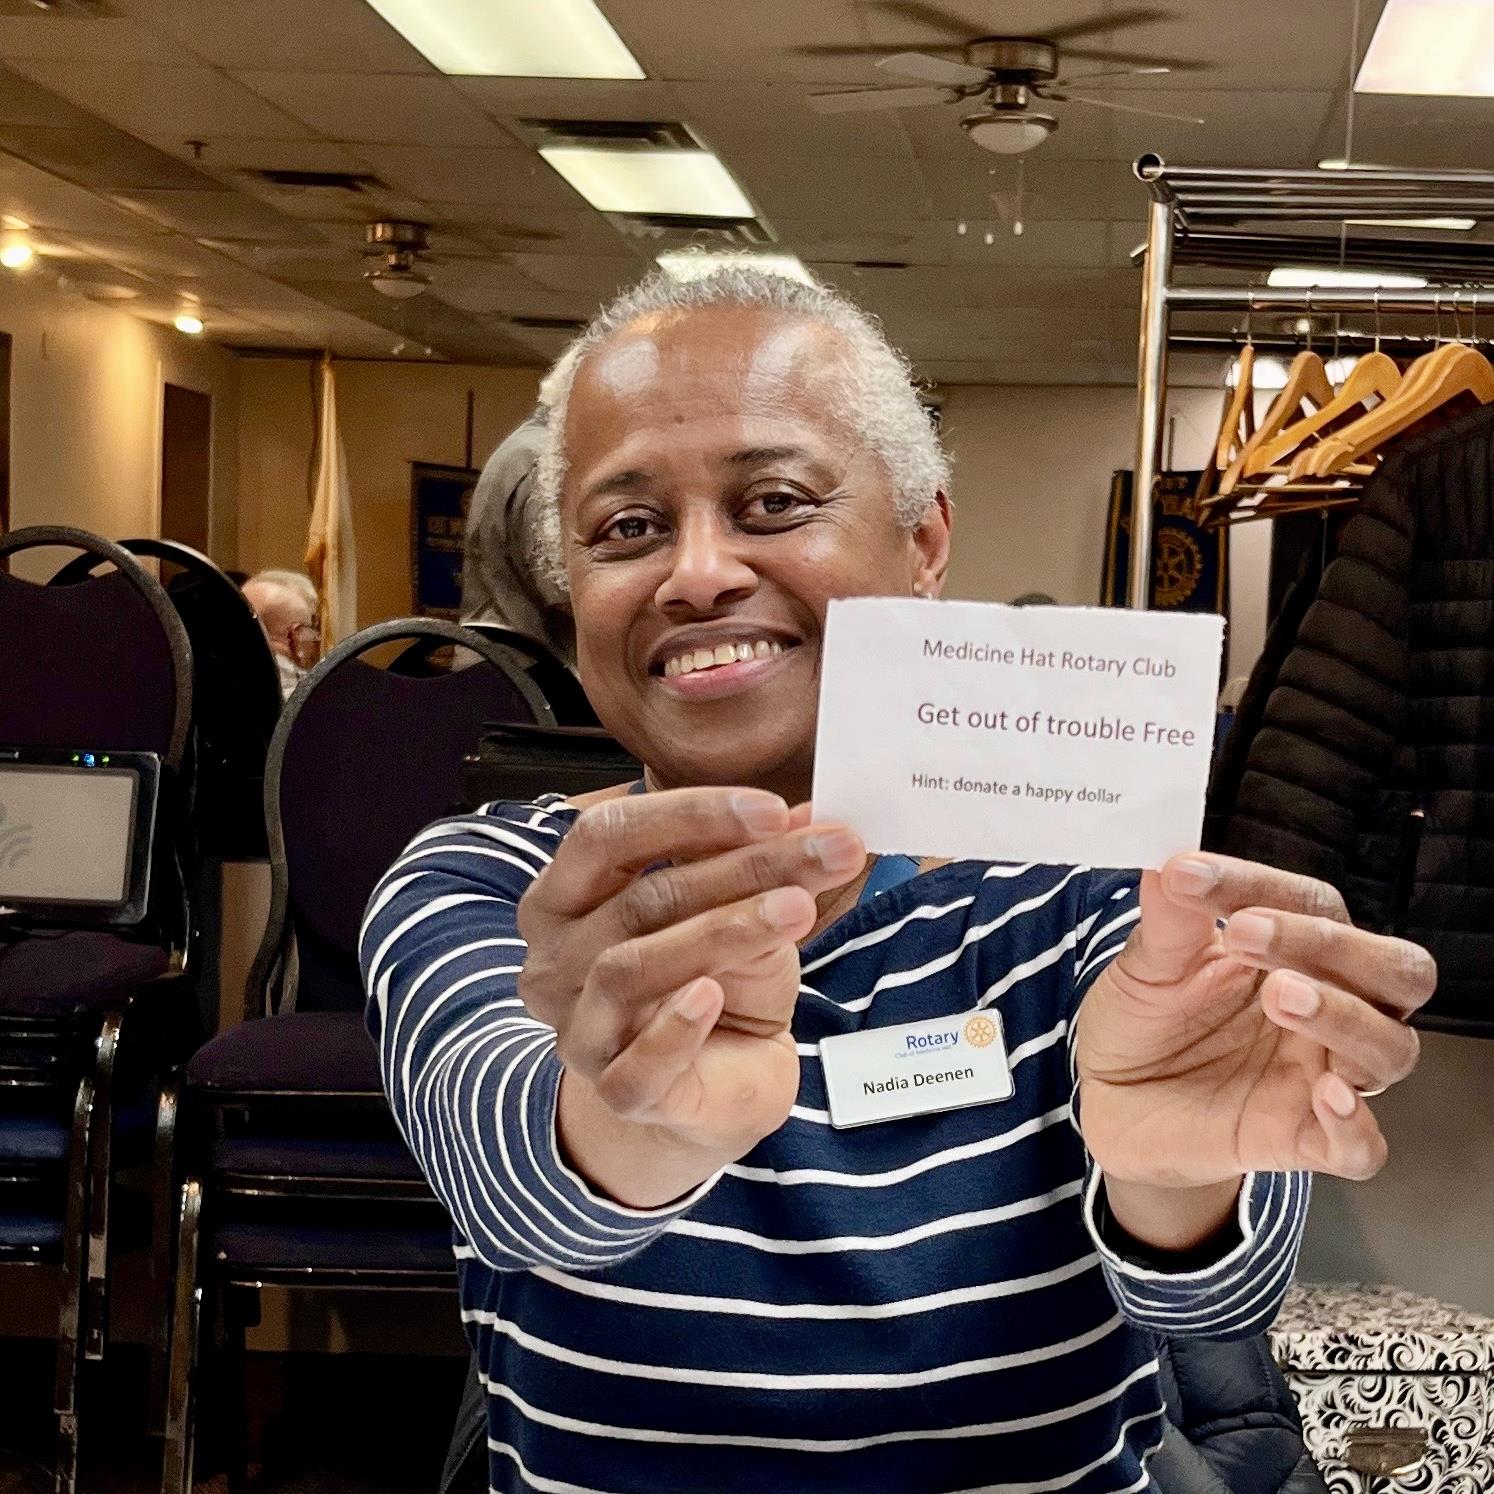 Medicine Hat Rotary Club
Get out of trouble Free
Hint: donate a happy dollar
Rotary
Club of Medicine Hat
Nadia Deenen